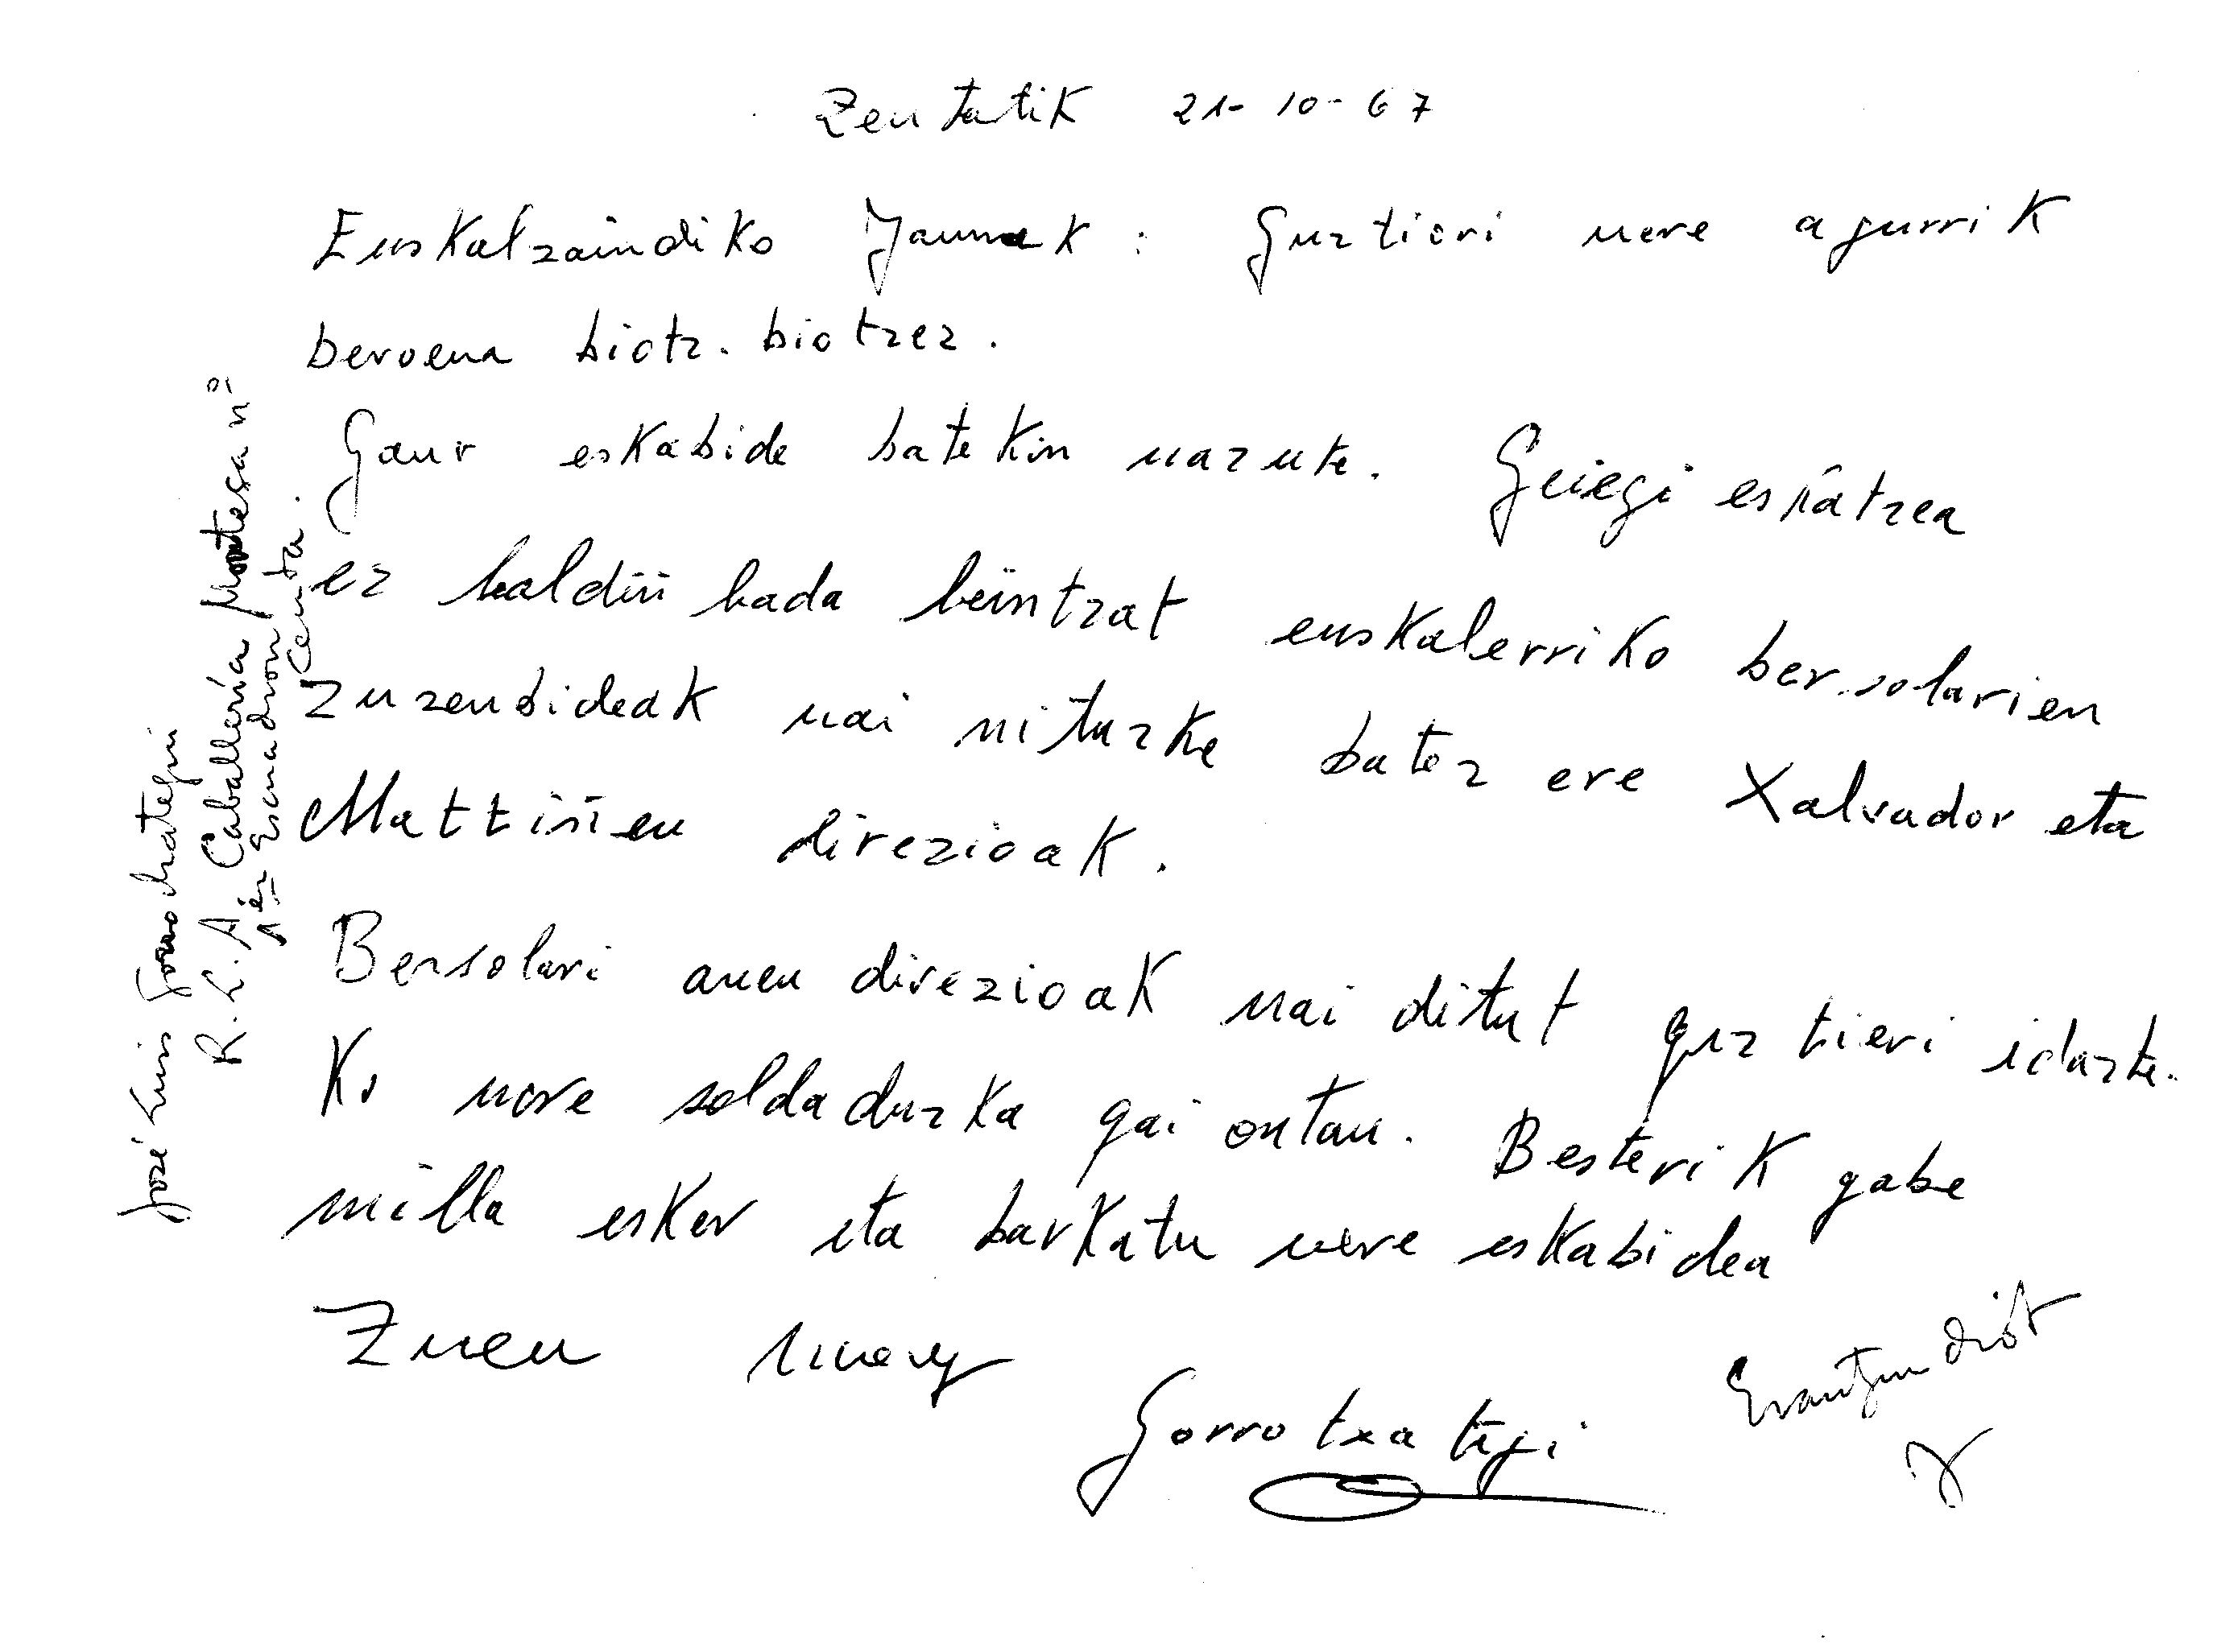 Zeutatik 21-10-67
Euskaltzaindiko Jaunak : Guztieri nere agurrik
beroena biotz-biotzez.
Gaur eskabide batekin nazute. Geiegi eskatzea
ez baldin bada beintzat euskalerriko bersolarien
zuzenbideak nai nituzke batez ere Xalvador eta
Mattiñen direzioak.
Bersolari auen direzioak nai ditut guztieri idazte-
ko nere soldaduzka gai ontan. Besterik gabe
milla esker eta barkatu nere eskabidea
Zuen
Gorrotxategi
Erantzun diot
José Luis Gorrochategui
R.L.A. Caballería Montesa nº
1er Escuadron
Ceuta.